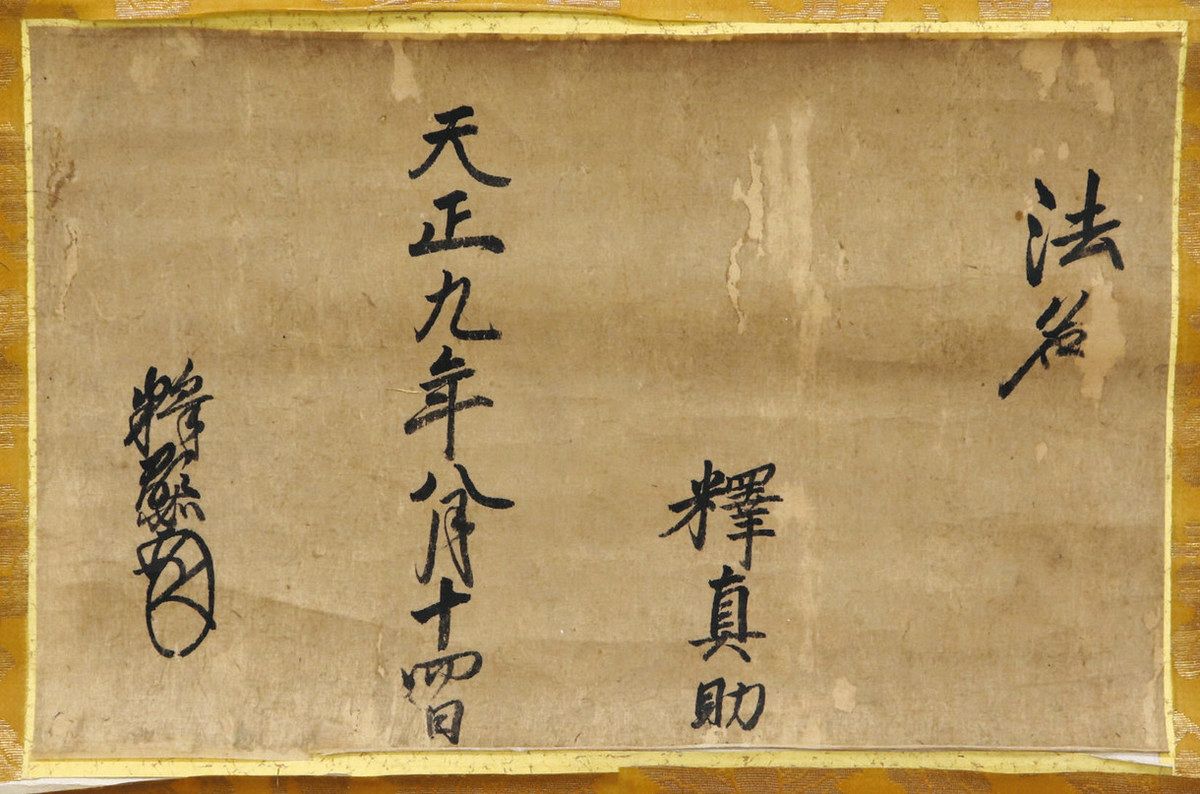 法名
釋真助
天正九年八月十四日
釋